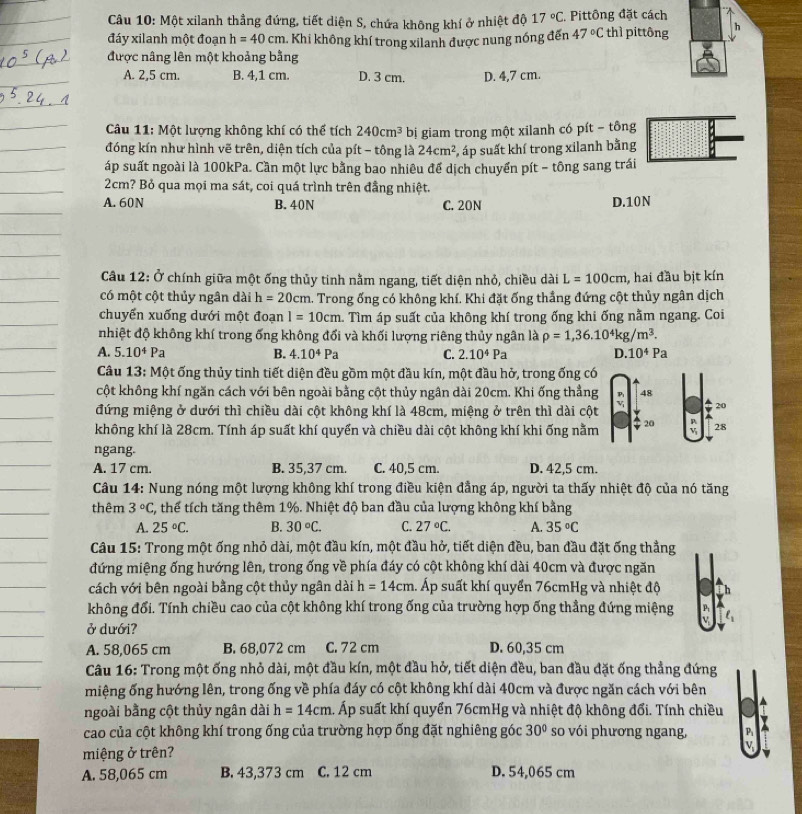 Câu 10: Một xilanh thẳng đứng, tiết diện S, chứa không khí ở nhiệt độ 17 ºC. Pittông đặt cách
đáy xilanh một đoạn h = 40 cm. Khi không khí trong xilanh được nung nóng đến 47 ºC thì pittông
được nâng lên một khoảng bằng
A. 2,5 cm. B. 4,1 cm. D. 3 cm. D. 4,7 cm.
h
10⁵ (Pa)
5. 24. 1
Câu 11: Một lượng không khí có thể tích 240cm³ bị giam trong một xilanh có pít – tông
đóng kín như hình vẽ trên, diện tích của pít – tông là 24cm², áp suất khí trong xilanh bằng
áp suất ngoài là 100kPa. Cần một lực bằng bao nhiêu để dịch chuyển pít – tông sang trái
2cm? Bỏ qua mọi ma sát, coi quá trình trên đẳng nhiệt.
A. 60N B. 40N C. 20N D.10N
Câu 12: Ở chính giữa một ống thủy tinh nằm ngang, tiết diện nhỏ, chiều dài L = 100cm, hai đầu bịt kín
có một cột thủy ngân dài h = 20cm. Trong ống có không khí. Khi đặt ống thẳng đứng cột thủy ngân dịch
chuyển xuống dưới một đoạn l = 10cm. Tìm áp suất của không khí trong ống khi ống nằm ngang. Coi
nhiệt độ không khí trong ống không đổi và khối lượng riêng thủy ngân là ρ = 1,36.10⁴kg/m³.
A. 5.10⁴ Pa B. 4.10⁴ Pa C. 2.10⁴ Pa D.10⁴ Pa
Câu 13: Một ống thủy tinh tiết diện đều gồm một đầu kín, một đầu hở, trong ống có
cột không khí ngăn cách với bên ngoài bằng cột thủy ngân dài 20cm. Khi ống thẳng
đứng miệng ở dưới thì chiều dài cột không khí là 48cm, miệng ở trên thì dài cột
không khí là 28cm. Tính áp suất khí quyển và chiều dài cột không khí khi ống nằm
ngang.
P₁ V₁ 48 20
P₁ V₁ 20 28
A. 17 cm. B. 35,37 cm. C. 40,5 cm. D. 42,5 cm.
Câu 14: Nung nóng một lượng không khí trong điều kiện đẳng áp, người ta thấy nhiệt độ của nó tăng
thêm 3 ºC, thể tích tăng thêm 1%. Nhiệt độ ban đầu của lượng không khí bằng
A. 25 ºC. B. 30 ºC. C. 27 ºC. A. 35 ºC
Câu 15: Trong một ống nhỏ dài, một đầu kín, một đầu hở, tiết diện đều, ban đầu đặt ống thẳng
đứng miệng ống hướng lên, trong ống về phía đáy có cột không khí dài 40cm và được ngăn
cách với bên ngoài bằng cột thủy ngân dài h = 14cm. Áp suất khí quyển 76cmHg và nhiệt độ
không đổi. Tính chiều cao của cột không khí trong ống của trường hợp ống thẳng đứng miệng
ở dưới?
h
P₁ V₁ ℓ₁
A. 58,065 cm B. 68,072 cm C. 72 cm D. 60,35 cm
Câu 16: Trong một ống nhỏ dài, một đầu kín, một đầu hở, tiết diện đều, ban đầu đặt ống thẳng đứng
miệng ống hướng lên, trong ống về phía đáy có cột không khí dài 40cm và được ngăn cách với bên
ngoài bằng cột thủy ngân dài h = 14cm. Áp suất khí quyển 76cmHg và nhiệt độ không đổi. Tính chiều
cao của cột không khí trong ống của trường hợp ống đặt nghiêng góc 30⁰ so vói phương ngang,
miệng ở trên?
P₁ V₁
A. 58,065 cm B. 43,373 cm C. 12 cm D. 54,065 cm